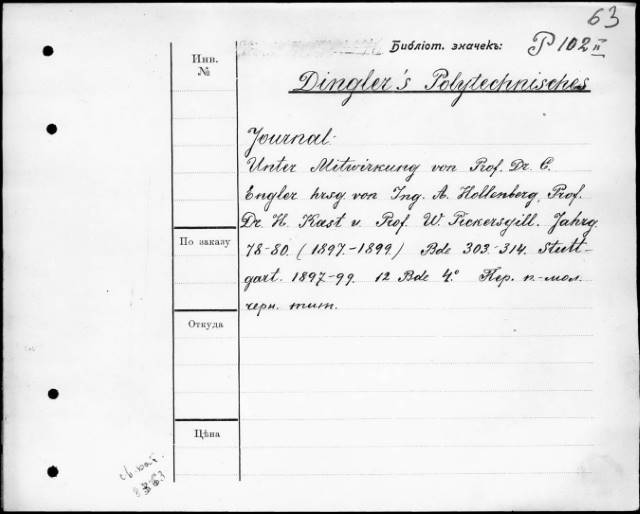 63
Библіот. значекъ: P 102 II
Инв.
№
Dingler's Polytechnisches
Journal.
Unter Mitwirkung von Prof. Dr. C.
Engler hrsg. von Ing. A. Hollenberg, Prof.
Dr. H. Kast u. Prof. W. Pickersgill. Jahrg.
78-80. (1897.-1899.) Bde 303.-314. Stutt-
gart. 1897-99. 12 Bde 4.° Кер. п-мол.
черн. тит.
По заказу
Откуда
Цѣна